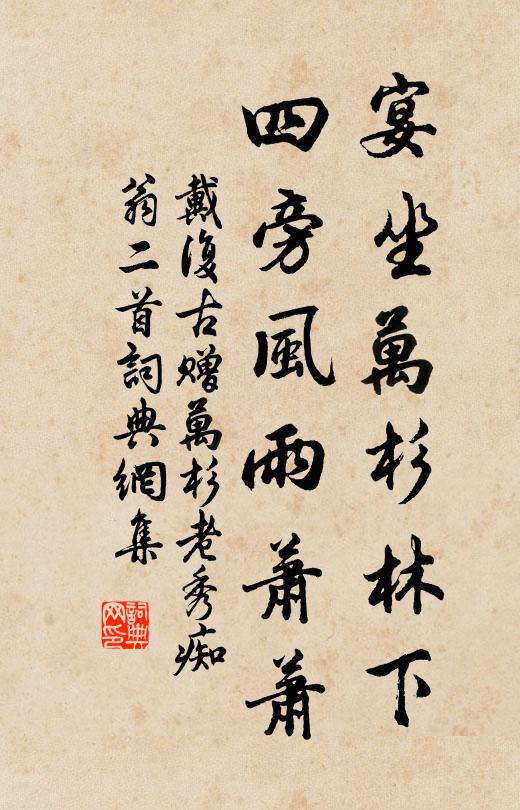 宴坐萬杉林下
四旁風雨蕭蕭
戴復古贈萬杉老秀痴
翁二首詞典網集
詞典网印